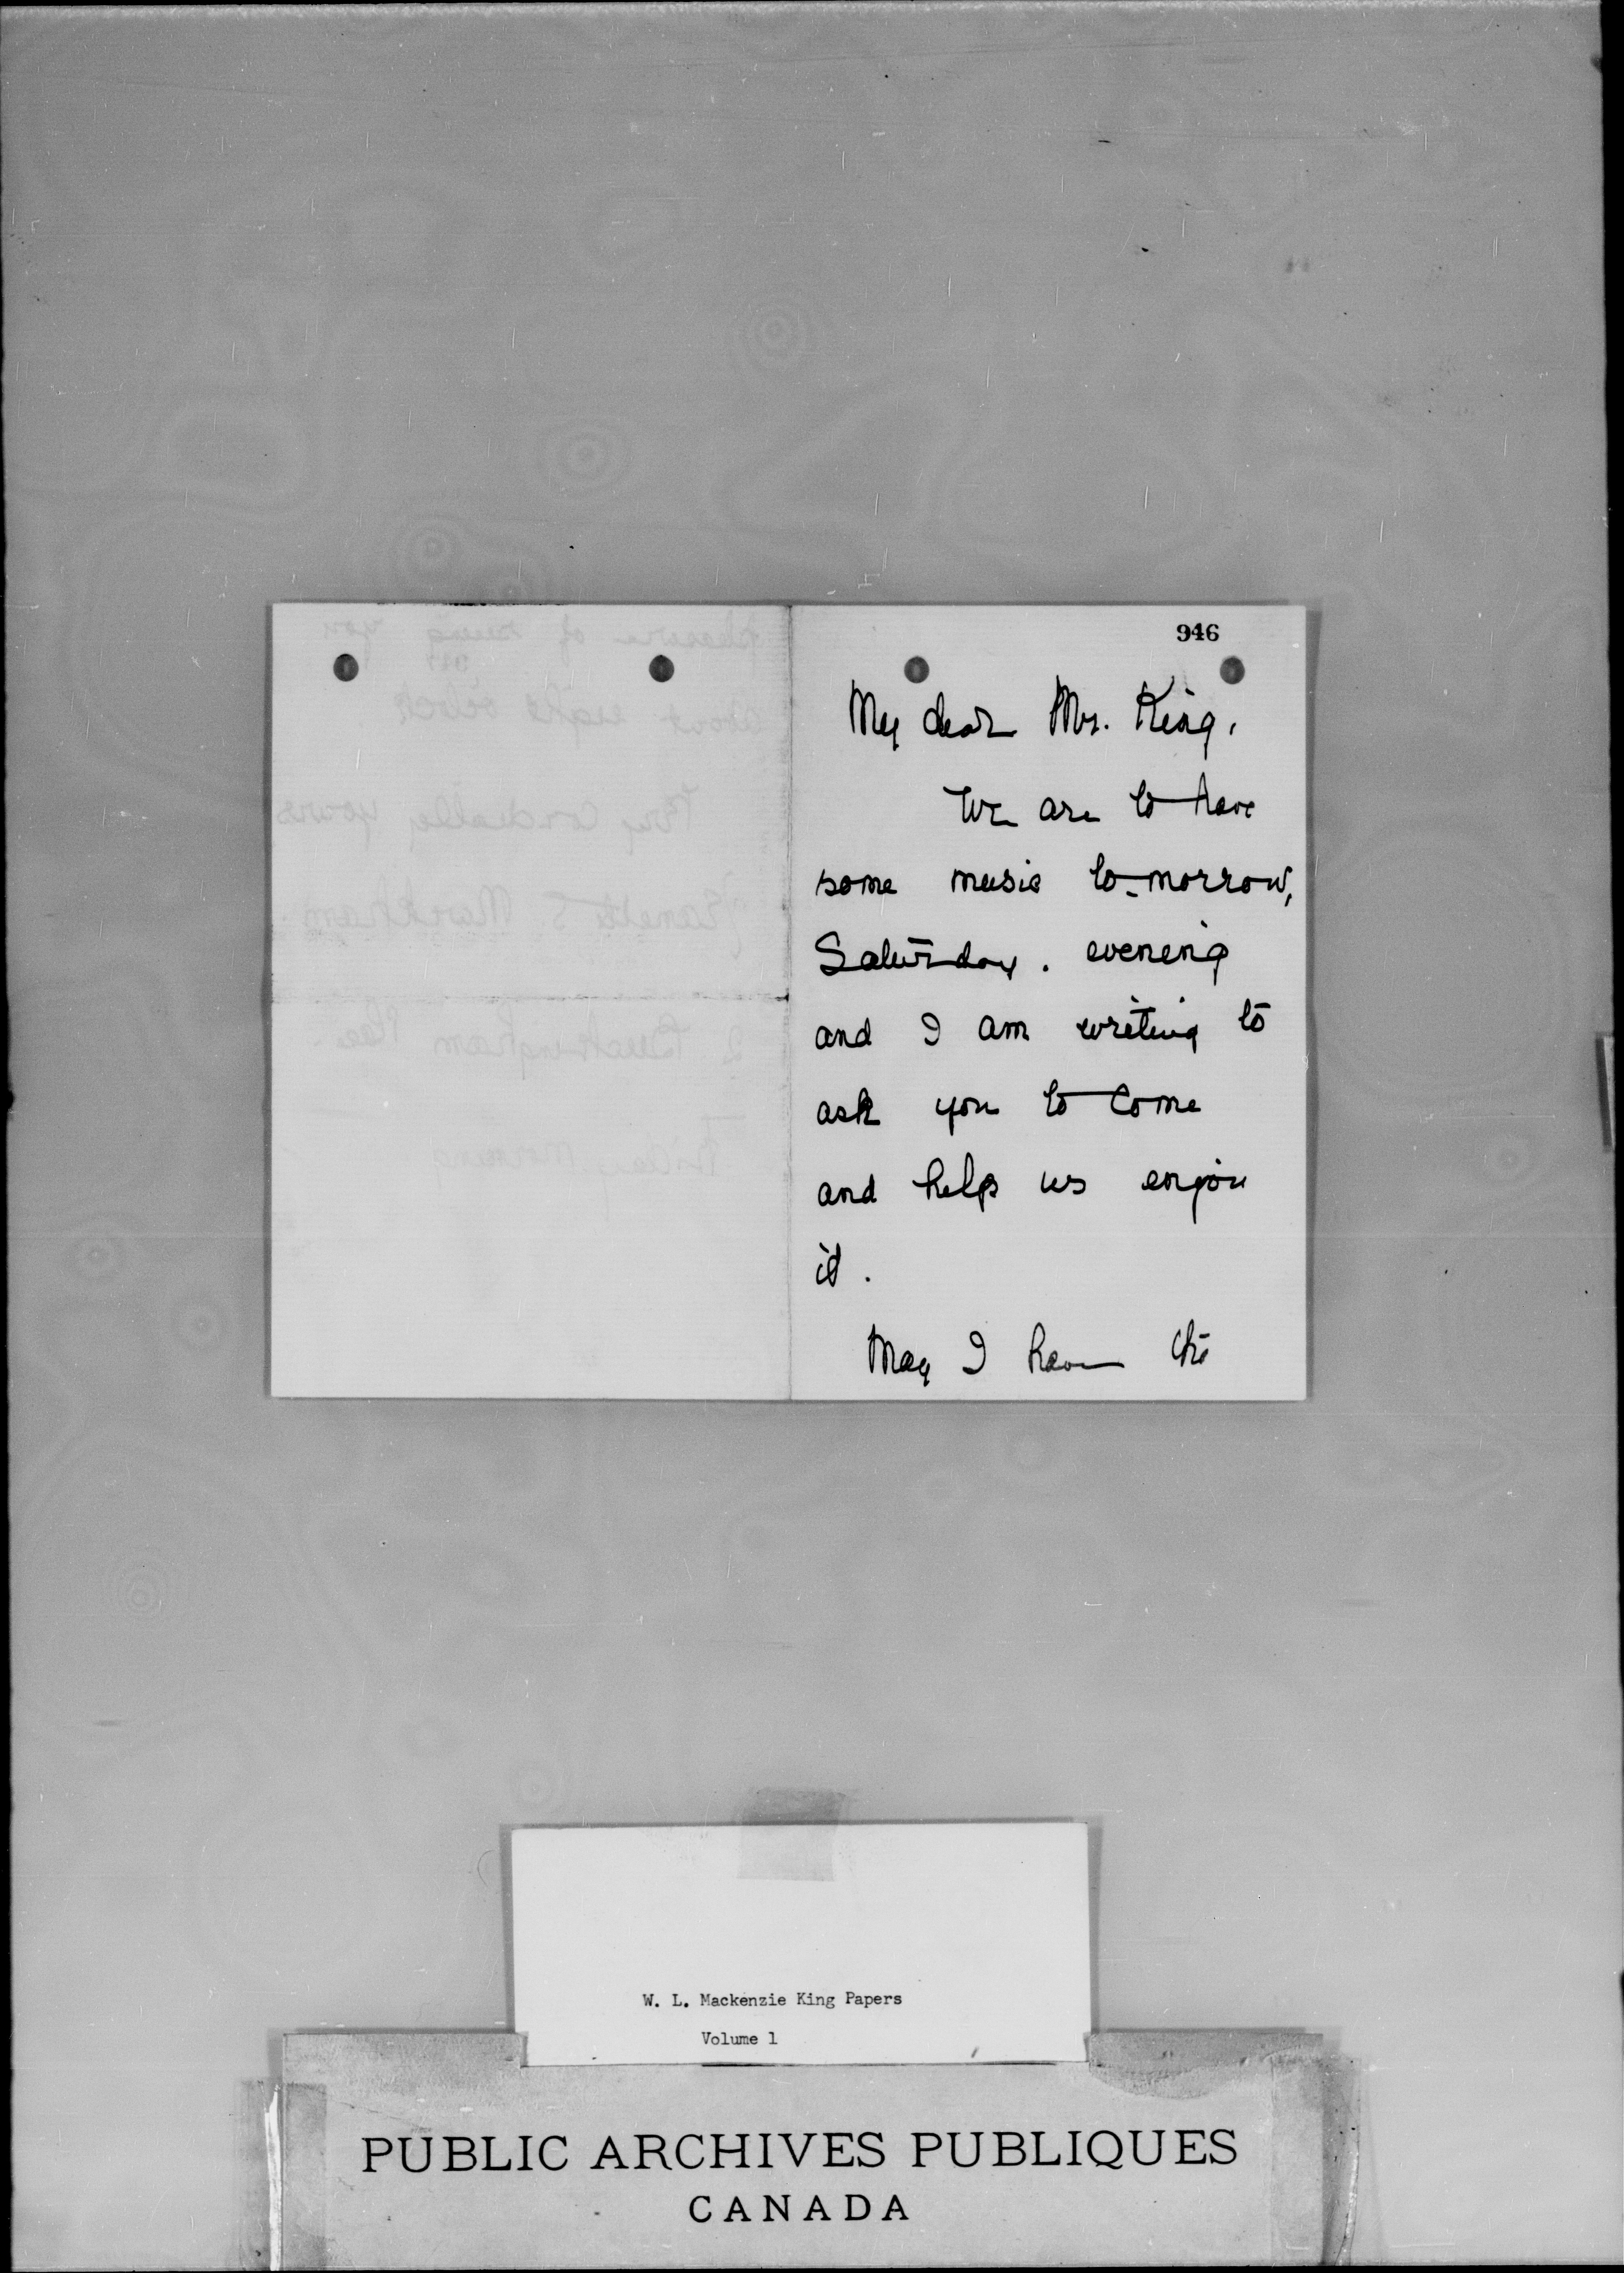 946
My dear Mr. King,
We are to have
some music to-morrow,
Saturday. evening
and I am writing to
ask you to come
and help us enjoy
it.
May I have the
pleasure of seeing you
947
about eight o'clock
Very cordially yours
S. Markham
2 Buckingham Place
Friday Morning
W. L. Mackenzie King Papers
Volume 1
PUBLIC ARCHIVES PUBLIQUES
CANADA